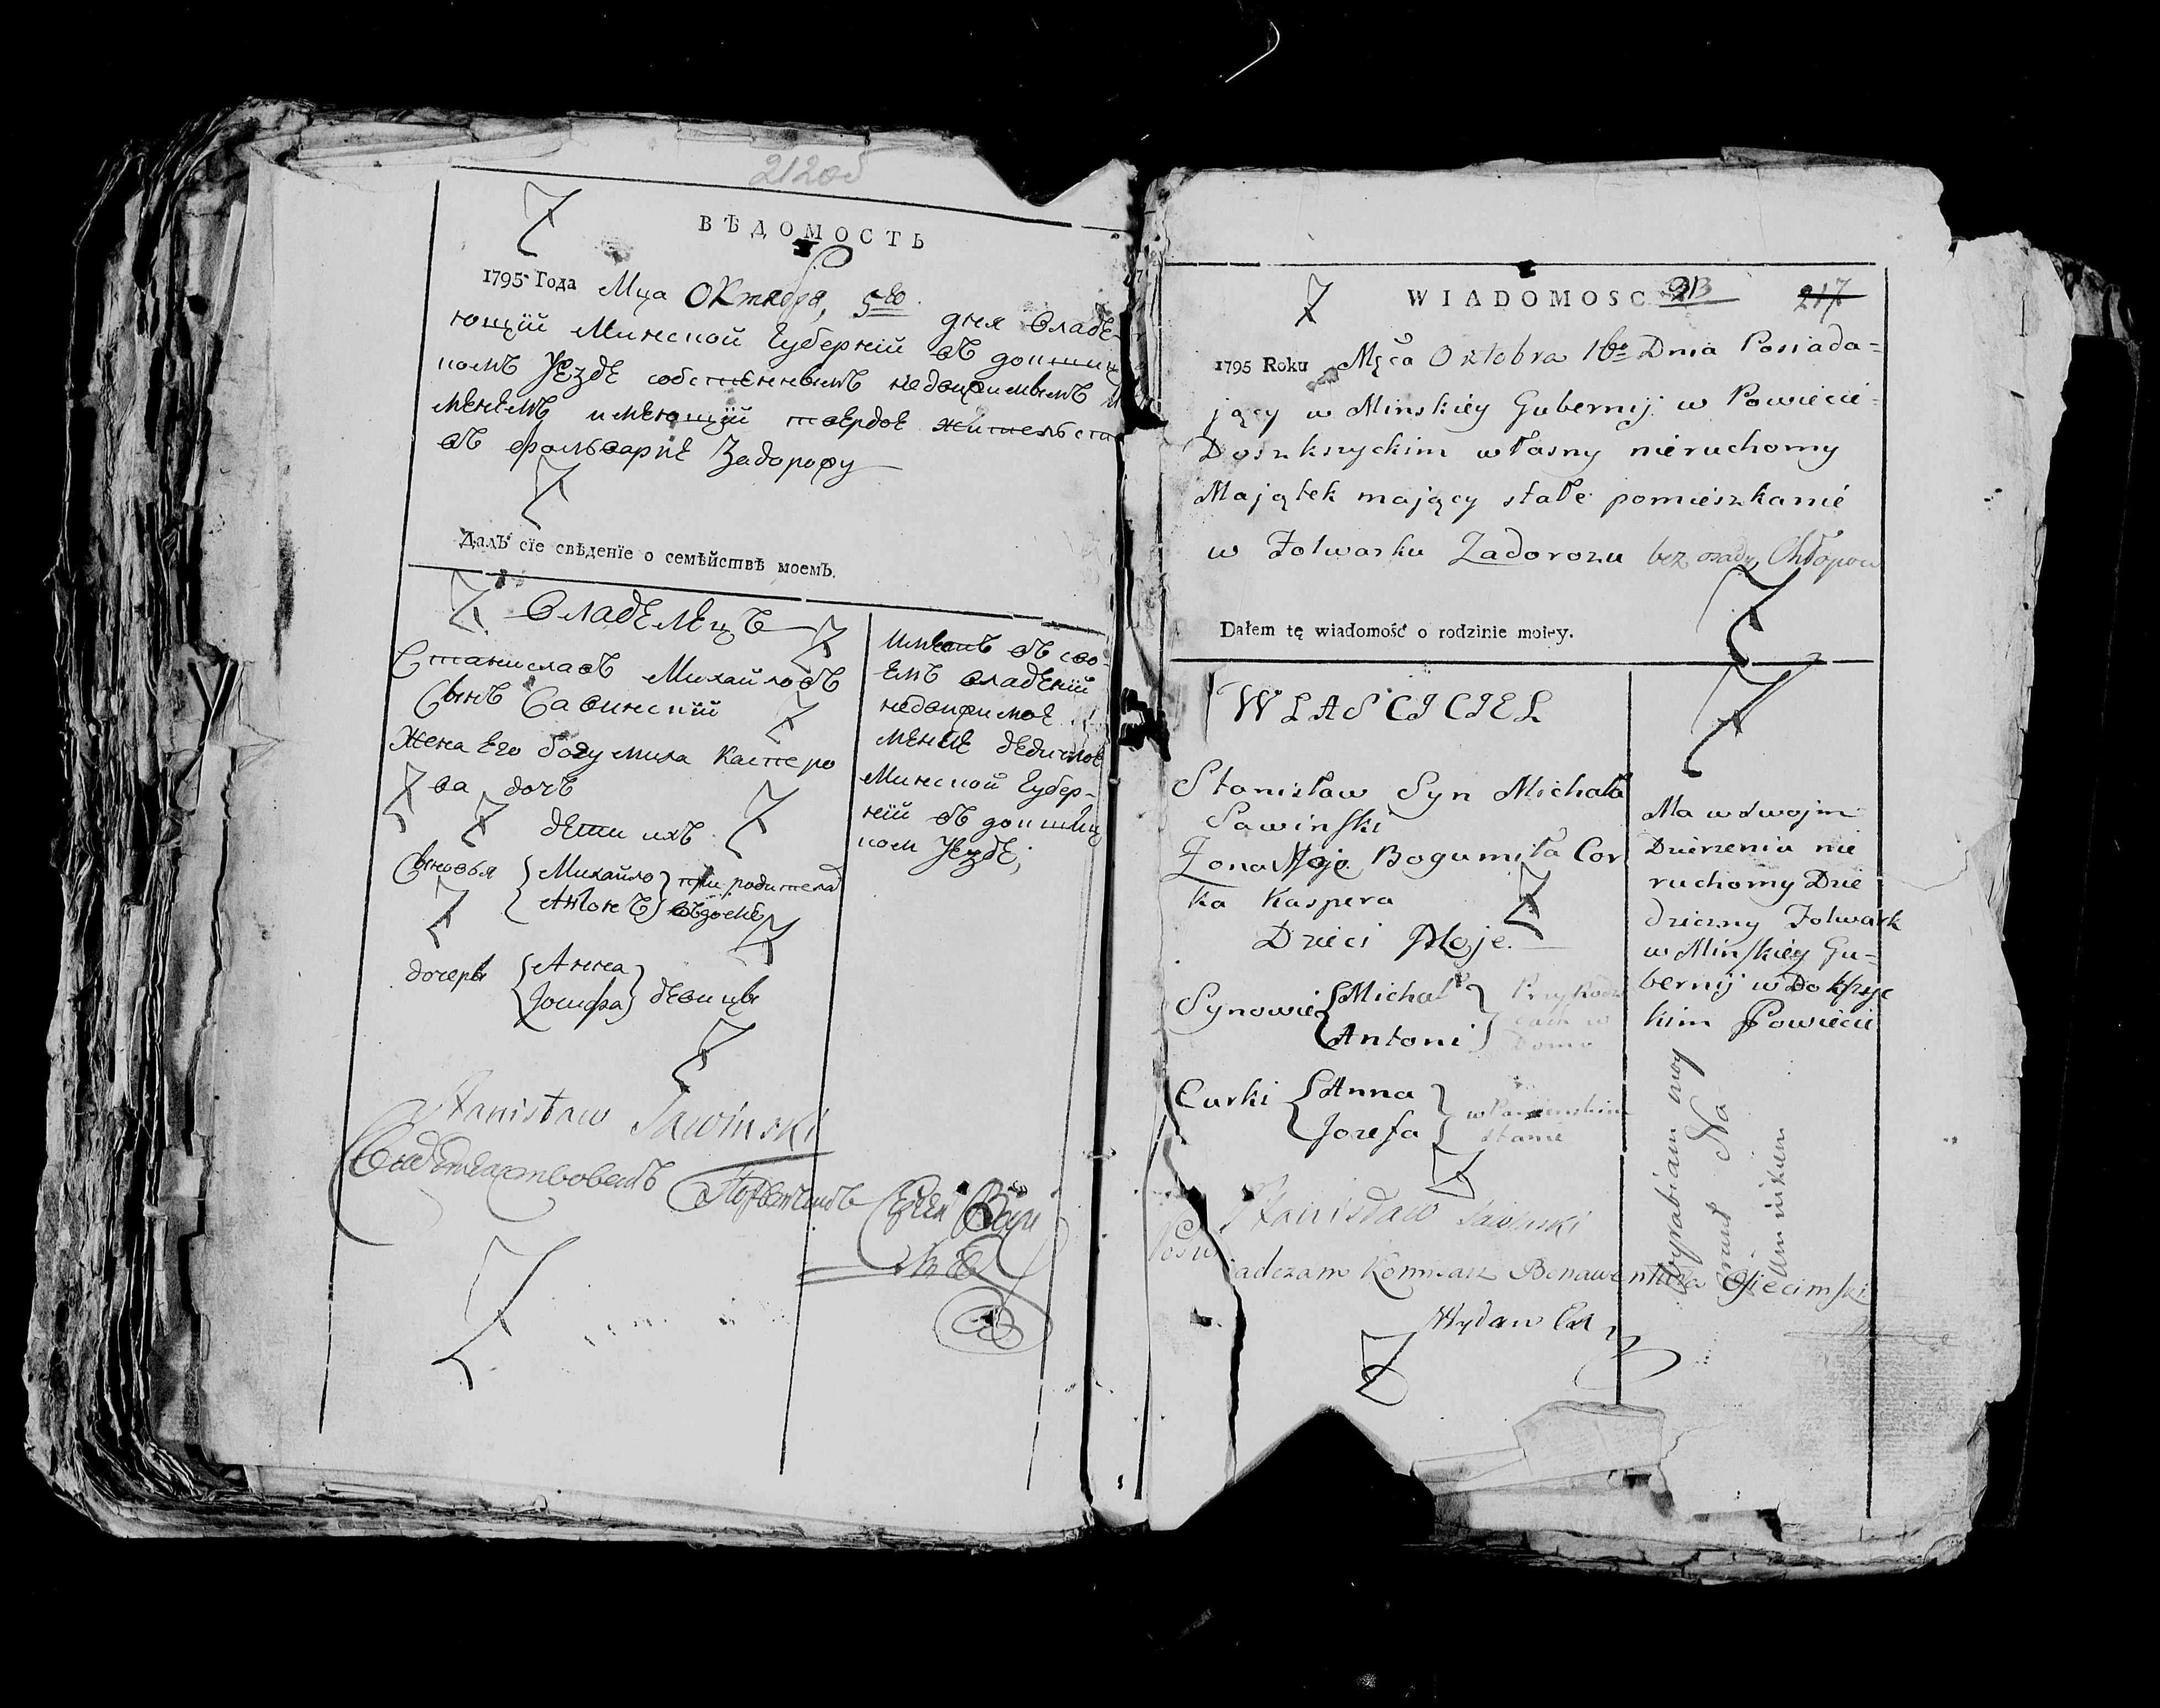 212об
ВѢДОМОСТЬ
1795 Года Мца Октября, 5го дня Владѣ-
ющїй Минской Губернїй въ докшиц
комъ Уездѣ собственнымъ недвижимымъ И
менемъ имеющїй твердое жительства
въ фольварке Задорожу
Далъ сїе свѣденїе о семѣйствѣ моемъ.
Владелецъ
Станиславъ Михайловъ
Сынъ Савинскїй
Жена Его богумила Каспе ро
ва дочь
дети ихъ
Сыновья Михайло
Антонъ при родителя
дочеры Анна
Јозифа девицы
Имеетъ въ сво-
емъ владенїй
недвижимое И
мение дедичное
Минской Губер-
нїй въ докшиц
ком Уезде;
Stanisław Sawinski
WIADOMOSC 213 217
1795 Roku Męca Oktobra 16º Dnia Posiada=
jący w Minskiey Gubernij w Powiecie=
Doszkszyckim własny nieruchomy
Majątek mający stałe pomieszkanié
w Folwarku Zadorozu bez osady Chłopow
Dałem tę wiadomość o rodzinie moiey.
WŁASCICIEL
Stanisław Syn Michała
Sawinski
Żona Moja Bogumiła Cor
ka Kaspera
Dzieci Moje.
Synowie Michał
Antoni Przy Rodzi
cach w
Domu
Curki Anna
Jozefa w Panienskim
stanie
Ma w swojm
Dzierzeniu nie
ruchomy Dzie
dziczny Folwark
w Minskiey Gu=
bernij w Dokszyc
kim Powiecie
Wyrabiam moy
Grunt Na
Stanisław Sawinski
Poswiadczam Komisarz Bonawentura Osiecimski